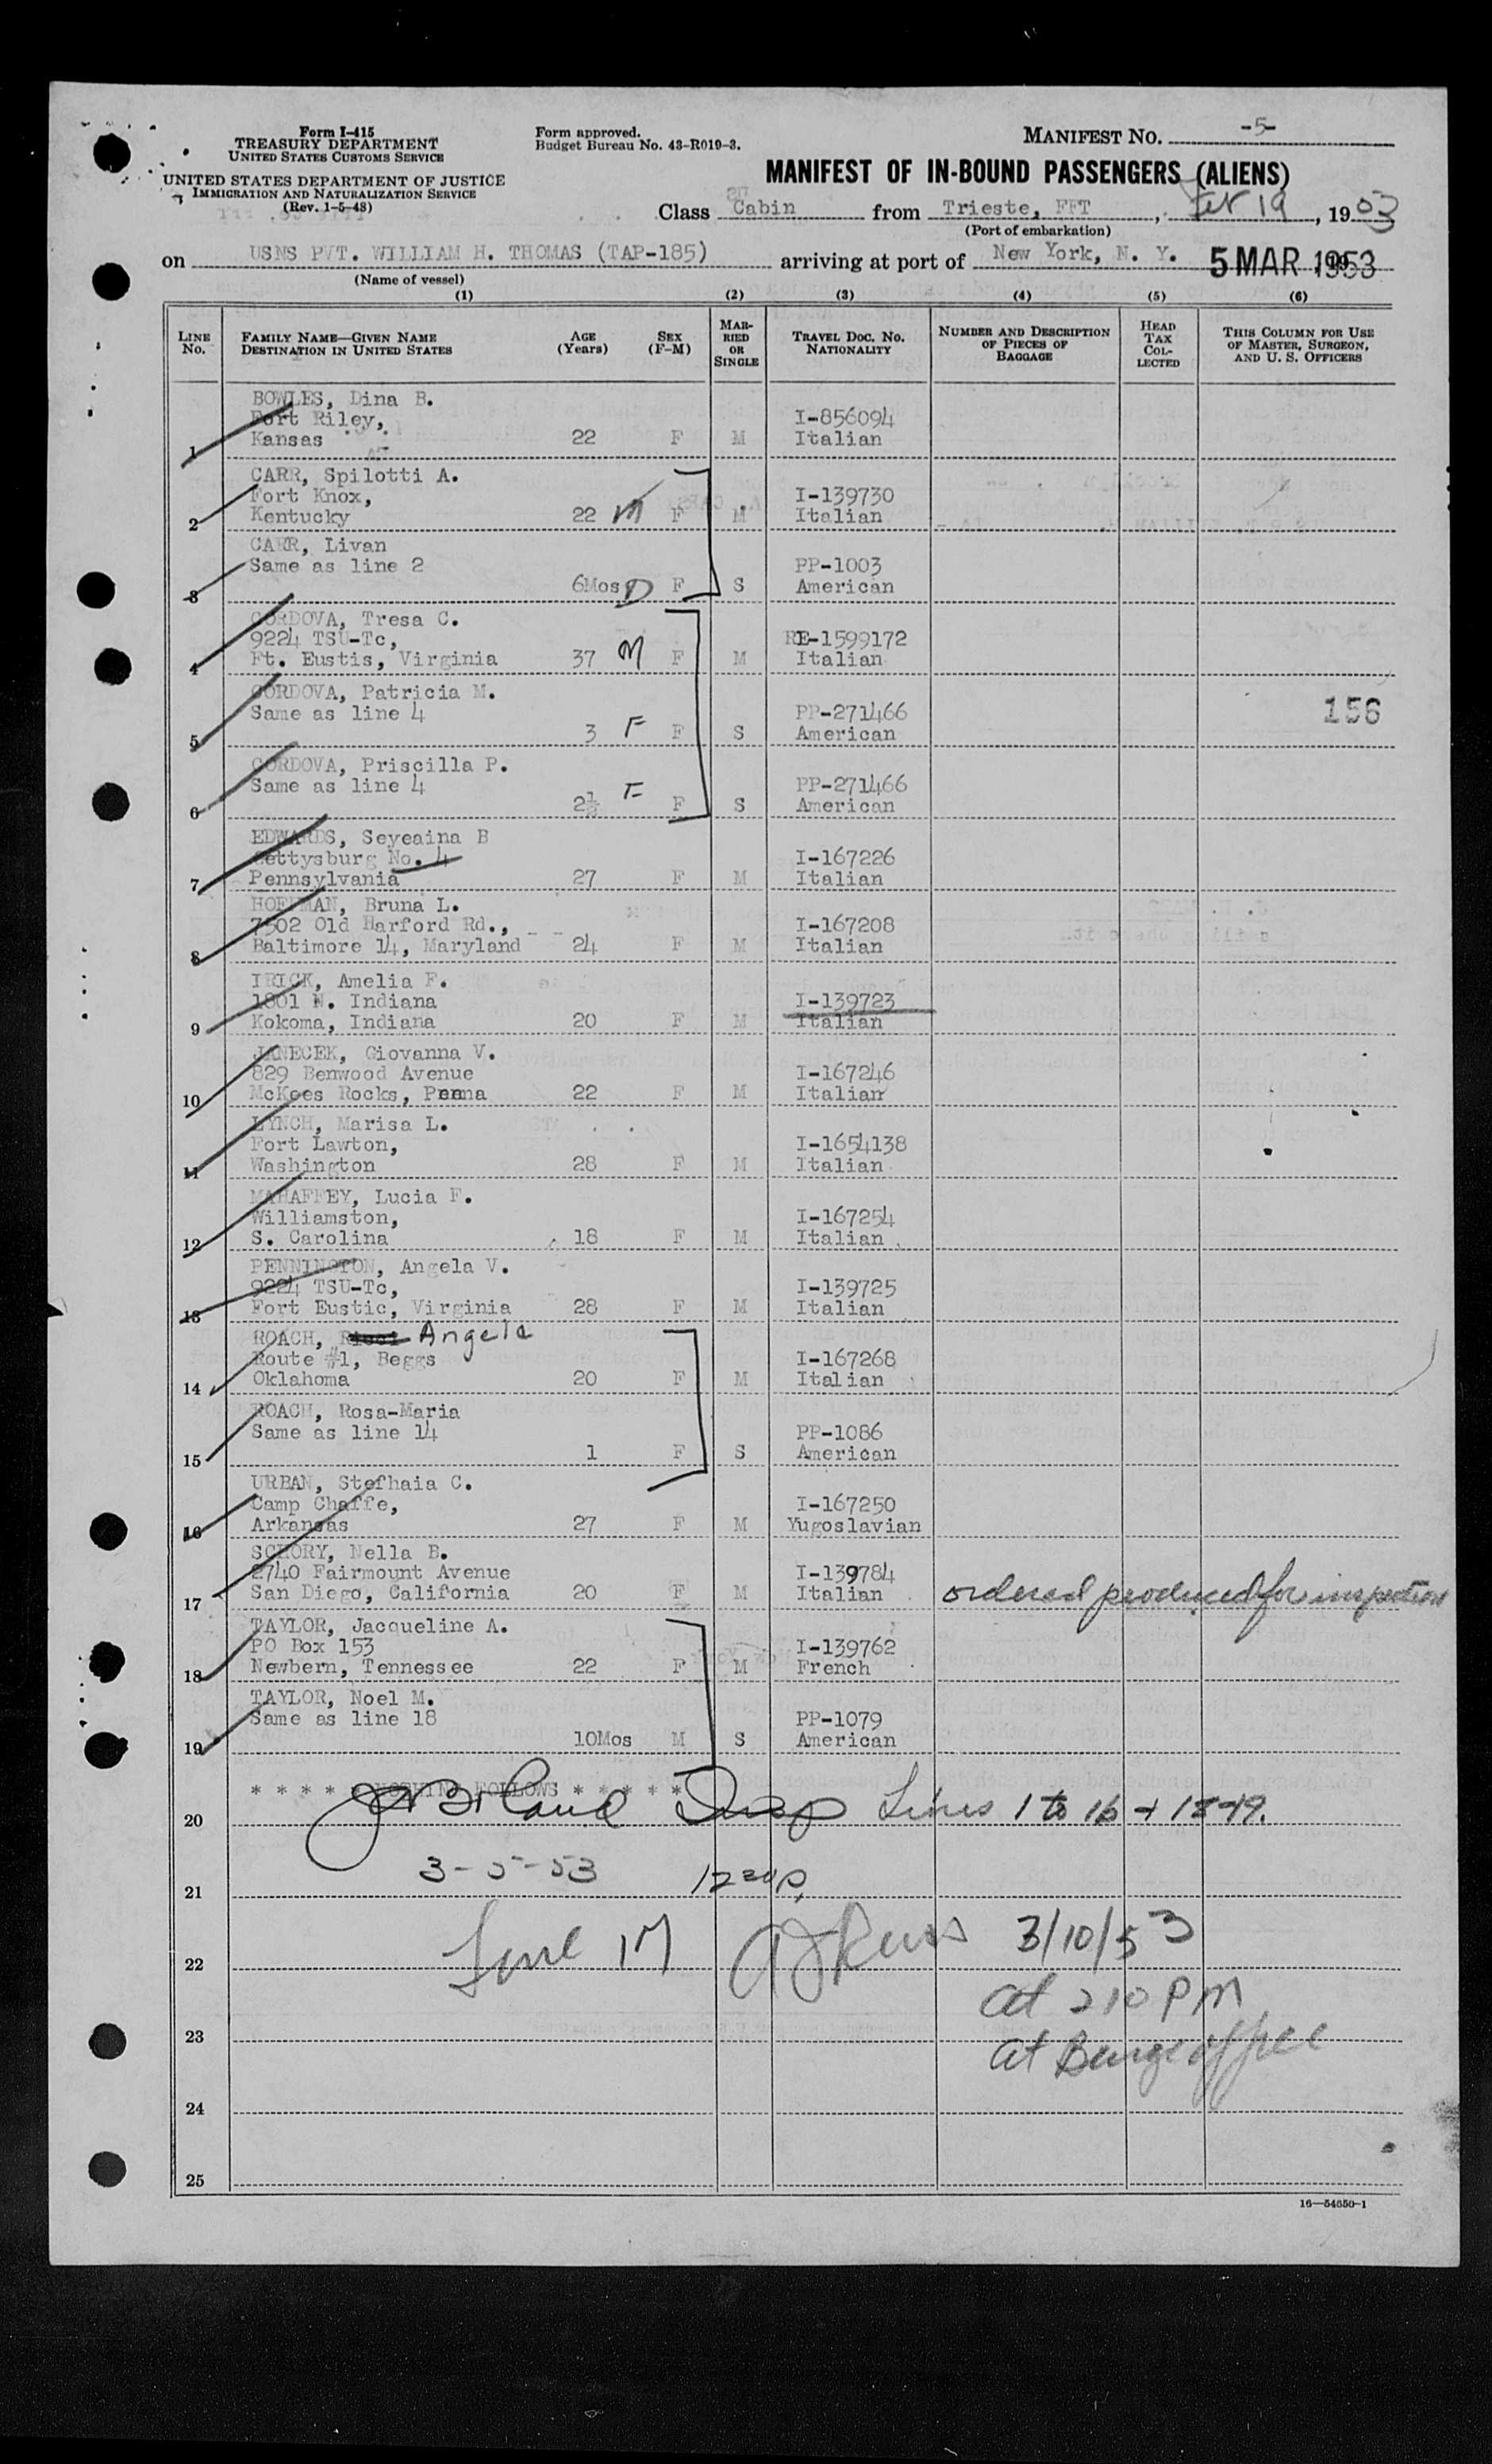 Form I-415
TREASURY DEPARTMENT
UNITED STATES CUSTOMS SERVICE
UNITED STATES DEPARTMENT OF JUSTICE
IMMIGRATION AND NATURALIZATION SERVICE
(Rev. 1-5-48)
Form approved.
Budget Bureau No. 43-R019-3.
MANIFEST NO. -5-
MANIFEST OF IN-BOUND PASSENGERS (ALIENS)
Class Cabin from Trieste, FFT, Feb 19, 1953
(Port of embarkation)
on USNS PVT. WILLIAM H. THOMAS (TAP-185) arriving at port of New York, N. Y. 5 MAR 1953
(Name of vessel)
(1) (2) (3) (4) (5) (6)
LINE No.
FAMILY NAME—GIVEN NAME
DESTINATION IN UNITED STATES
AGE (Years)
SEX (F-M)
MARRIED OR SINGLE
TRAVEL DOC. NO.
NATIONALITY
NUMBER AND DESCRIPTION OF PIECES OF BAGGAGE
HEAD TAX COLLECTED
THIS COLUMN FOR USE OF MASTER, SURGEON, AND U. S. OFFICERS
BOWLES, Dina B.
Fort Riley, I-856094
1 Kansas 22 F M Italian
CARR, Spilotti A.
Fort Knox, I-139730
2 Kentucky 22 M F M Italian
CARR, Livan
Same as line 2 PP-1003
3 6Mos D F S American
CORDOVA, Tresa C.
9224 TSU-Tc, RE-1599172
4 Ft. Eustis, Virginia 37 M F M Italian
CORDOVA, Patricia M.
Same as line 4 PP-271466 156
5 3 F F S American
CORDOVA, Priscilla P.
Same as line 4 PP-271466
6 2½ F F S American
EDWARDS, Seyeaina B
Gettysburg No. 4 I-167226
7 Pennsylvania 27 F M Italian
HOFFMAN, Bruna L.
7502 Old Harford Rd., I-167208
8 Baltimore 14, Maryland 24 F M Italian
IRICK, Amelia F.
1801 N. Indiana I-139723
9 Kokoma, Indiana 20 F M Italian
JANECEK, Giovanna V.
829 Benwood Avenue I-167246
10 McKees Rocks, Penna 22 F M Italian
LYNCH, Marisa L.
Fort Lawton, I-1654138
11 Washington 28 F M Italian
MAHAFFEY, Lucia F.
Williamston, I-167254
12 S. Carolina 18 F M Italian
PENNINGTON, Angela V.
9224 TSU-Tc, I-139725
13 Fort Eustic, Virginia 28 F M Italian
ROACH, Angela
Route #1, Beggs I-167268
14 Oklahoma 20 F M Italian
ROACH, Rosa-Maria
Same as line 14 PP-1086
15 1 F S American
URBAN, Stefhaia C.
Camp Chaffe, I-167250
16 Arkansas 27 F M Yugoslavian
SCHORY, Nella B.
2740 Fairmount Avenue I-139784
17 San Diego, California 20 F M Italian ordered produced for inspection
TAYLOR, Jacqueline A.
PO Box 153 I-139762
18 Newbern, Tennessee 22 F M French
TAYLOR, Noel M.
Same as line 18 PP-1079
19 10Mos M S American
* * * * * NOTHING FOLLOWS * * * * *
20 Insp Lines 1 to 16 + 18+19.
21 3-5-53 1230 P.
22 Line 17 3/10/53
at 210 PM
23 at Barge office
24
25
16—54650-1